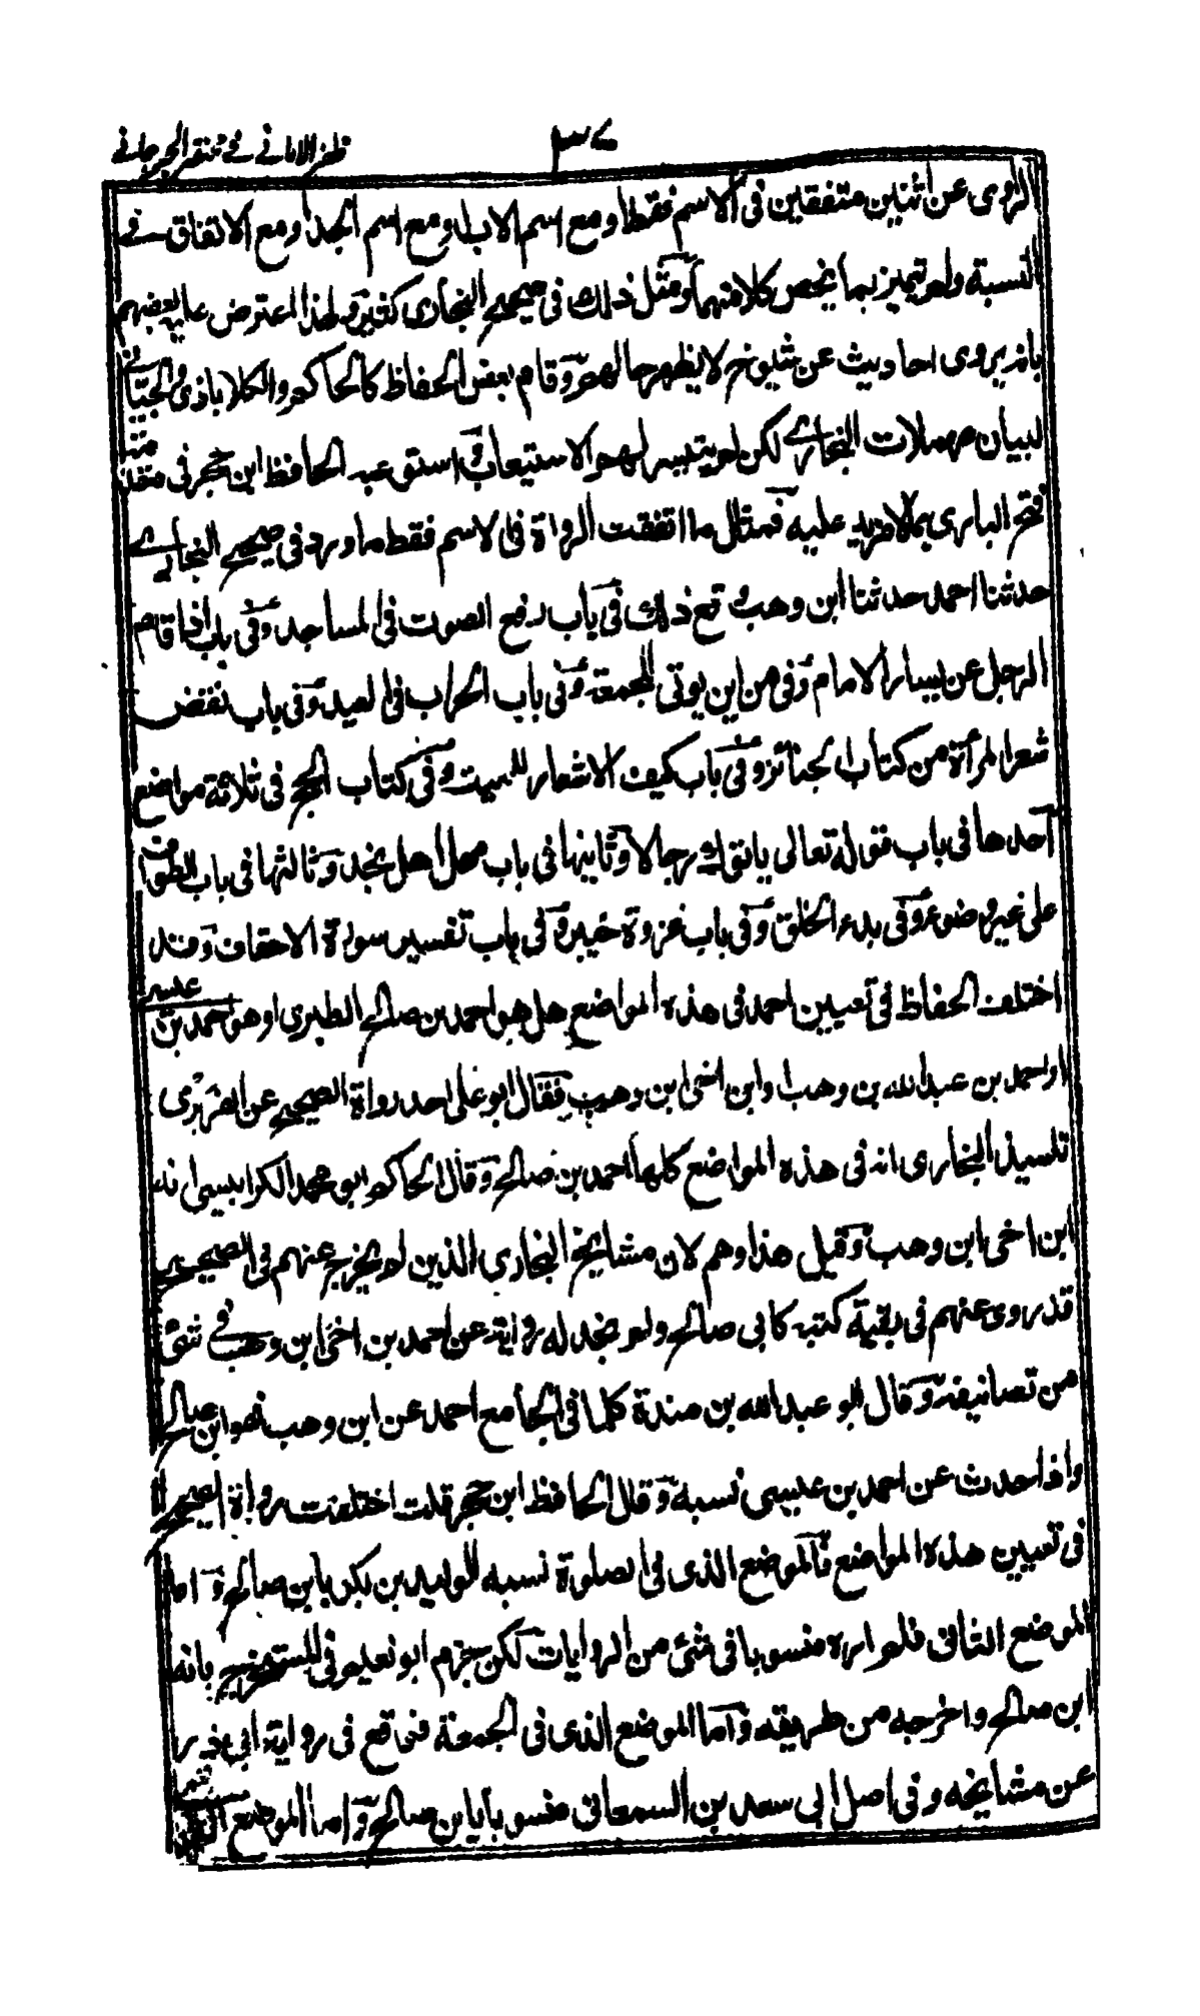 ظفر الامانى فى مختصر الجرجانى
٣٧
الراوى عن اثنين متفقين فى الاسم فقط او مع اسم الاب او مع اسم الجد او مع الاتفاق فى
النسبة ولم يتميز بما يخص كلا منهما ومثل ذلك فى صحيح البخارى كثير ولهذا اعترض عليه بعضهم
بانه يروى احاديث عن شيوخ لا يظهر حالهم وقام بعض الحفاظ كالحاكم والكلاباذى والجيانى
لبيان مهملات البخارى لكن لم يتيسر لهم الاستيعاب واستوعبه الحافظ ابن حجر فى مقدمة
فتح البارى بما لا مزيد عليه فمثال ما اتفقت الرواة فى الاسم فقط ما ورد فى صحيح البخارى
حدثنا احمد حدثنا ابن وهب وقع ذلك فى باب رفع الصوت فى المساجد وفى باب اذا قام
الرجل عن يسار الامام وفى من اين يوتى الجمعة وفى باب الحراب فى العيد وفى باب نقض
شعر المرأة من كتاب الجنائز وفى باب كيف الاشعار للميت وفى كتاب الحج فى ثلاثة مواضع
احدها فى باب قوله تعالى ياتوك رجالا وثانيها فى باب مهل اهل نجد وثالثها فى باب الطواف
على غير وضوء وفى بدء الخلق وفى باب غزوة خيبر وفى باب تفسير سورة الاحقاف وقد
اختلف الحفاظ فى تعيين احمد فى هذه المواضع هل هو احمد بن صالح الطبرى او هو احمد بن عيسى
او احمد بن عبد الله بن وهب ابن اخى ابن وهب فقال ابو على احد رواة الصحيح عن الفربرى
تلميذ البخارى انه فى هذه المواضع كلها احمد بن صالح وقال الحاكم ابو محمد الكرابيسى انه
ابن اخى ابن وهب وقيل هذا وهم لان مشايخ البخارى الذين لم يخرج عنهم فى الصحيح
قد روى عنهم فى بقية كتبه كابى صالح ولم نجد له رواية عن احمد بن اخى ابن وهب فى شئ
من تصانيفه وقال ابو عبد الله بن مندة كلما فى الجامع احمد عن ابن وهب فهو ابن صالح
واذا حدث عن احمد بن عيسى نسبه وقال الحافظ ابن حجر قلت اختلفت رواة الصحيح
فى تعيين هذه المواضع فالموضع الذى فى الصلوة نسبه الوليد بن بكر بابن صالح واما
الموضع الثانى فلم اره منسوبا فى شئ من الروايات لكن جزم ابو نعيم فى المستخرج بانه
ابن صالح واخرجه من طريقه واما الموضع الذى فى الجمعة فوقع فى رواية ابى ذر
عن مشايخه وفى اصل ابى سعد بن السمعانى منسوبا بابن صالح واما الموضع